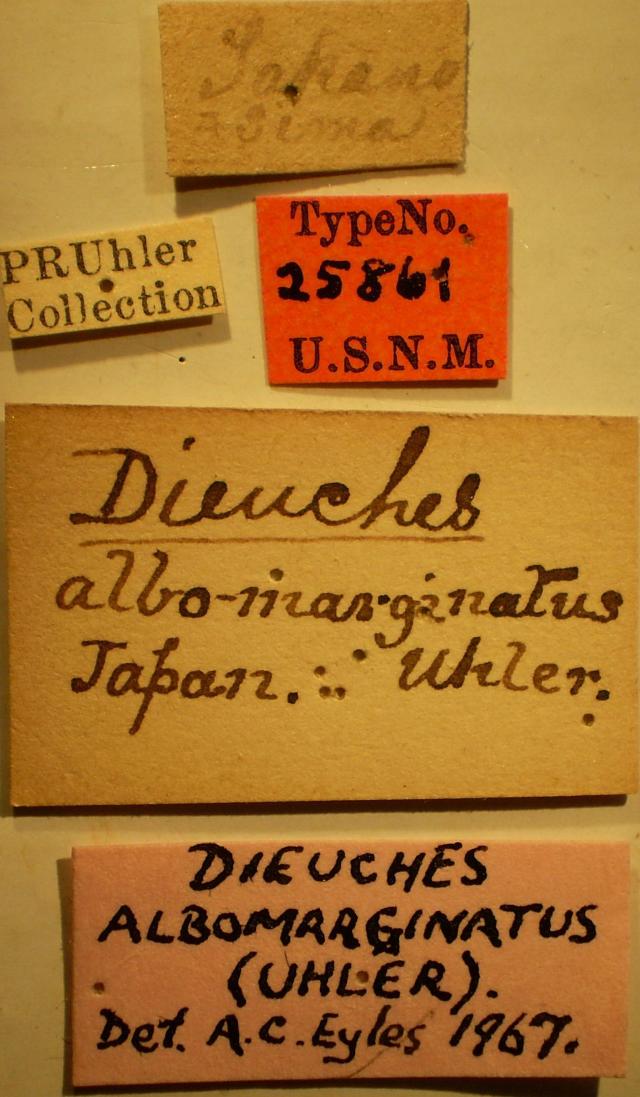 Takano
sima
TypeNo.
25861
U.S.N.M.
PRUhler
Collection
Dieuches
albo-marginatus
Japan. Uhler.
DIEUCHES
ALBOMARGINATUS
(UHLER).
Det. A.C. Eyles 1967.